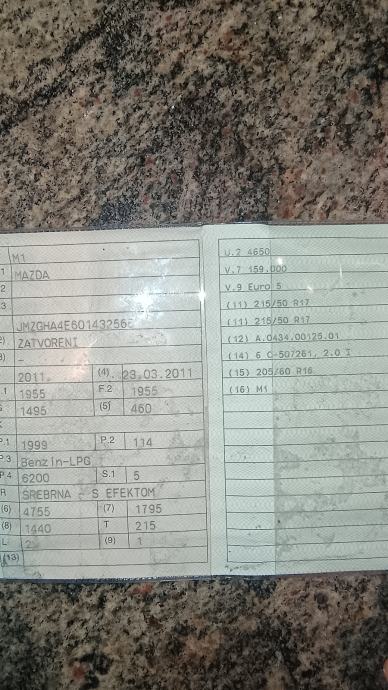 M1
1 MAZDA
2
3
ZATVORENI
2011. (4) 23.03.2011
.1 1955 F.2 1955
1495 (5) 460
P.1 1999 P.2 114
P.3 Benzin-LPG
P.4 6200 S.1 5
R SREBRNA - S EFEKTOM
(6) 4755 (7) 1795
(8) 1440 T 215
L 2 (9) 1
(13)
U.2 4650
V.7 159.000
V.9 Euro 5
(11) 215/50 R17
(11) 215/50 R17
(12) A.0434.00125.01
(14) 6 C-507261, 2.0 I
(15) 205/60 R16
(16) M1